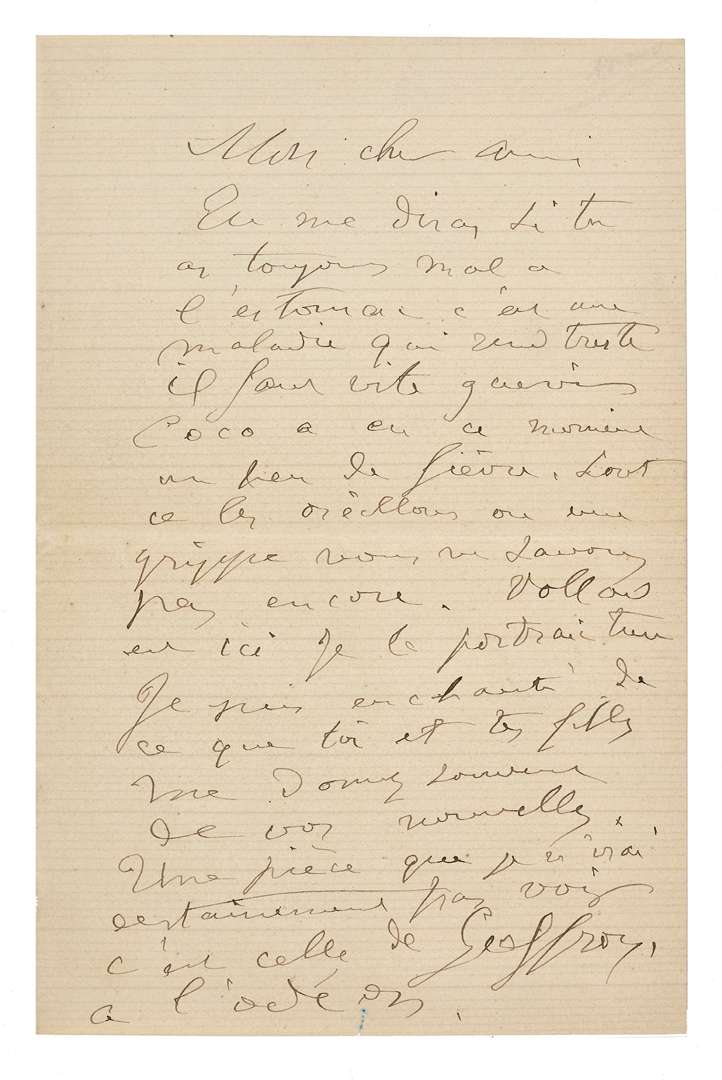 Mon cher ami
Tu me diras si tu
as toujours mal a
l'estomac c'est une
maladie qui rend triste
il faut vite guerir
Coco a eu ce moment
un peu de fièvre. Sont
ce les oréillons ou une
grippe nous ne savons
pas encore. Vollard
est ici Je le portraiture
Je suis enchanté de
ce que toi et tes filles
me donnez souvent
de vos nouvelles.
Une pièce que je n'irai
certainement pas voir
c'est celle de Geoffroy,
a l'odéon.